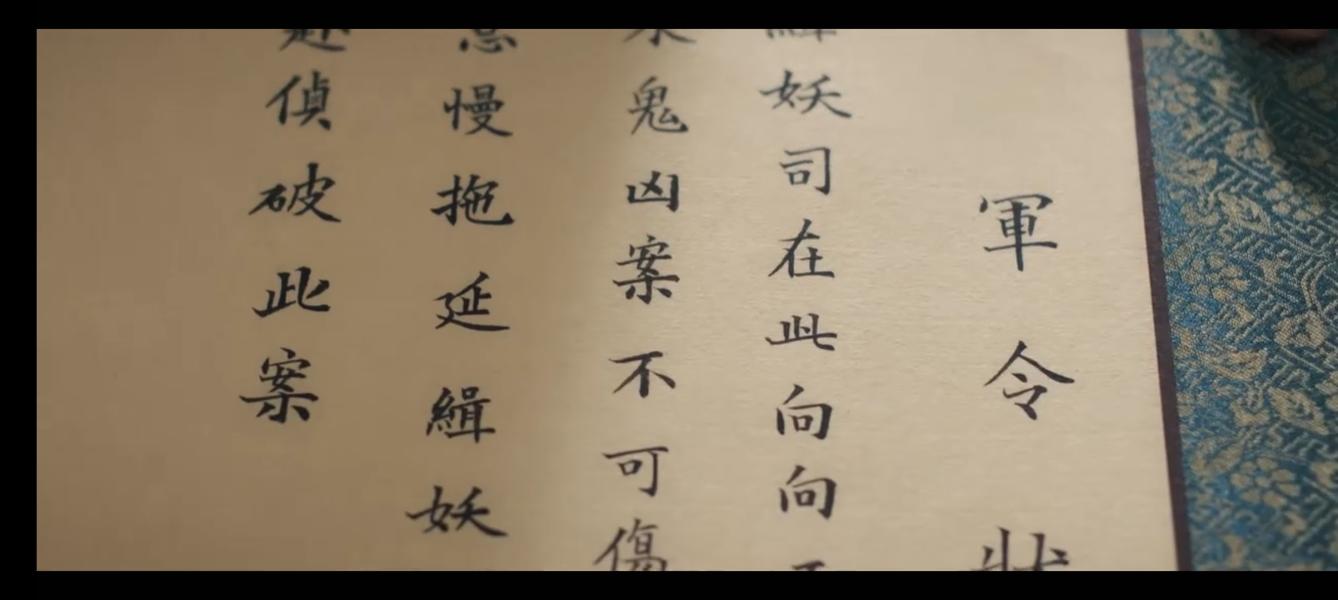 軍令狀
緝妖司在此向向
鬼凶案不可傷
怠慢拖延緝妖
偵破此案